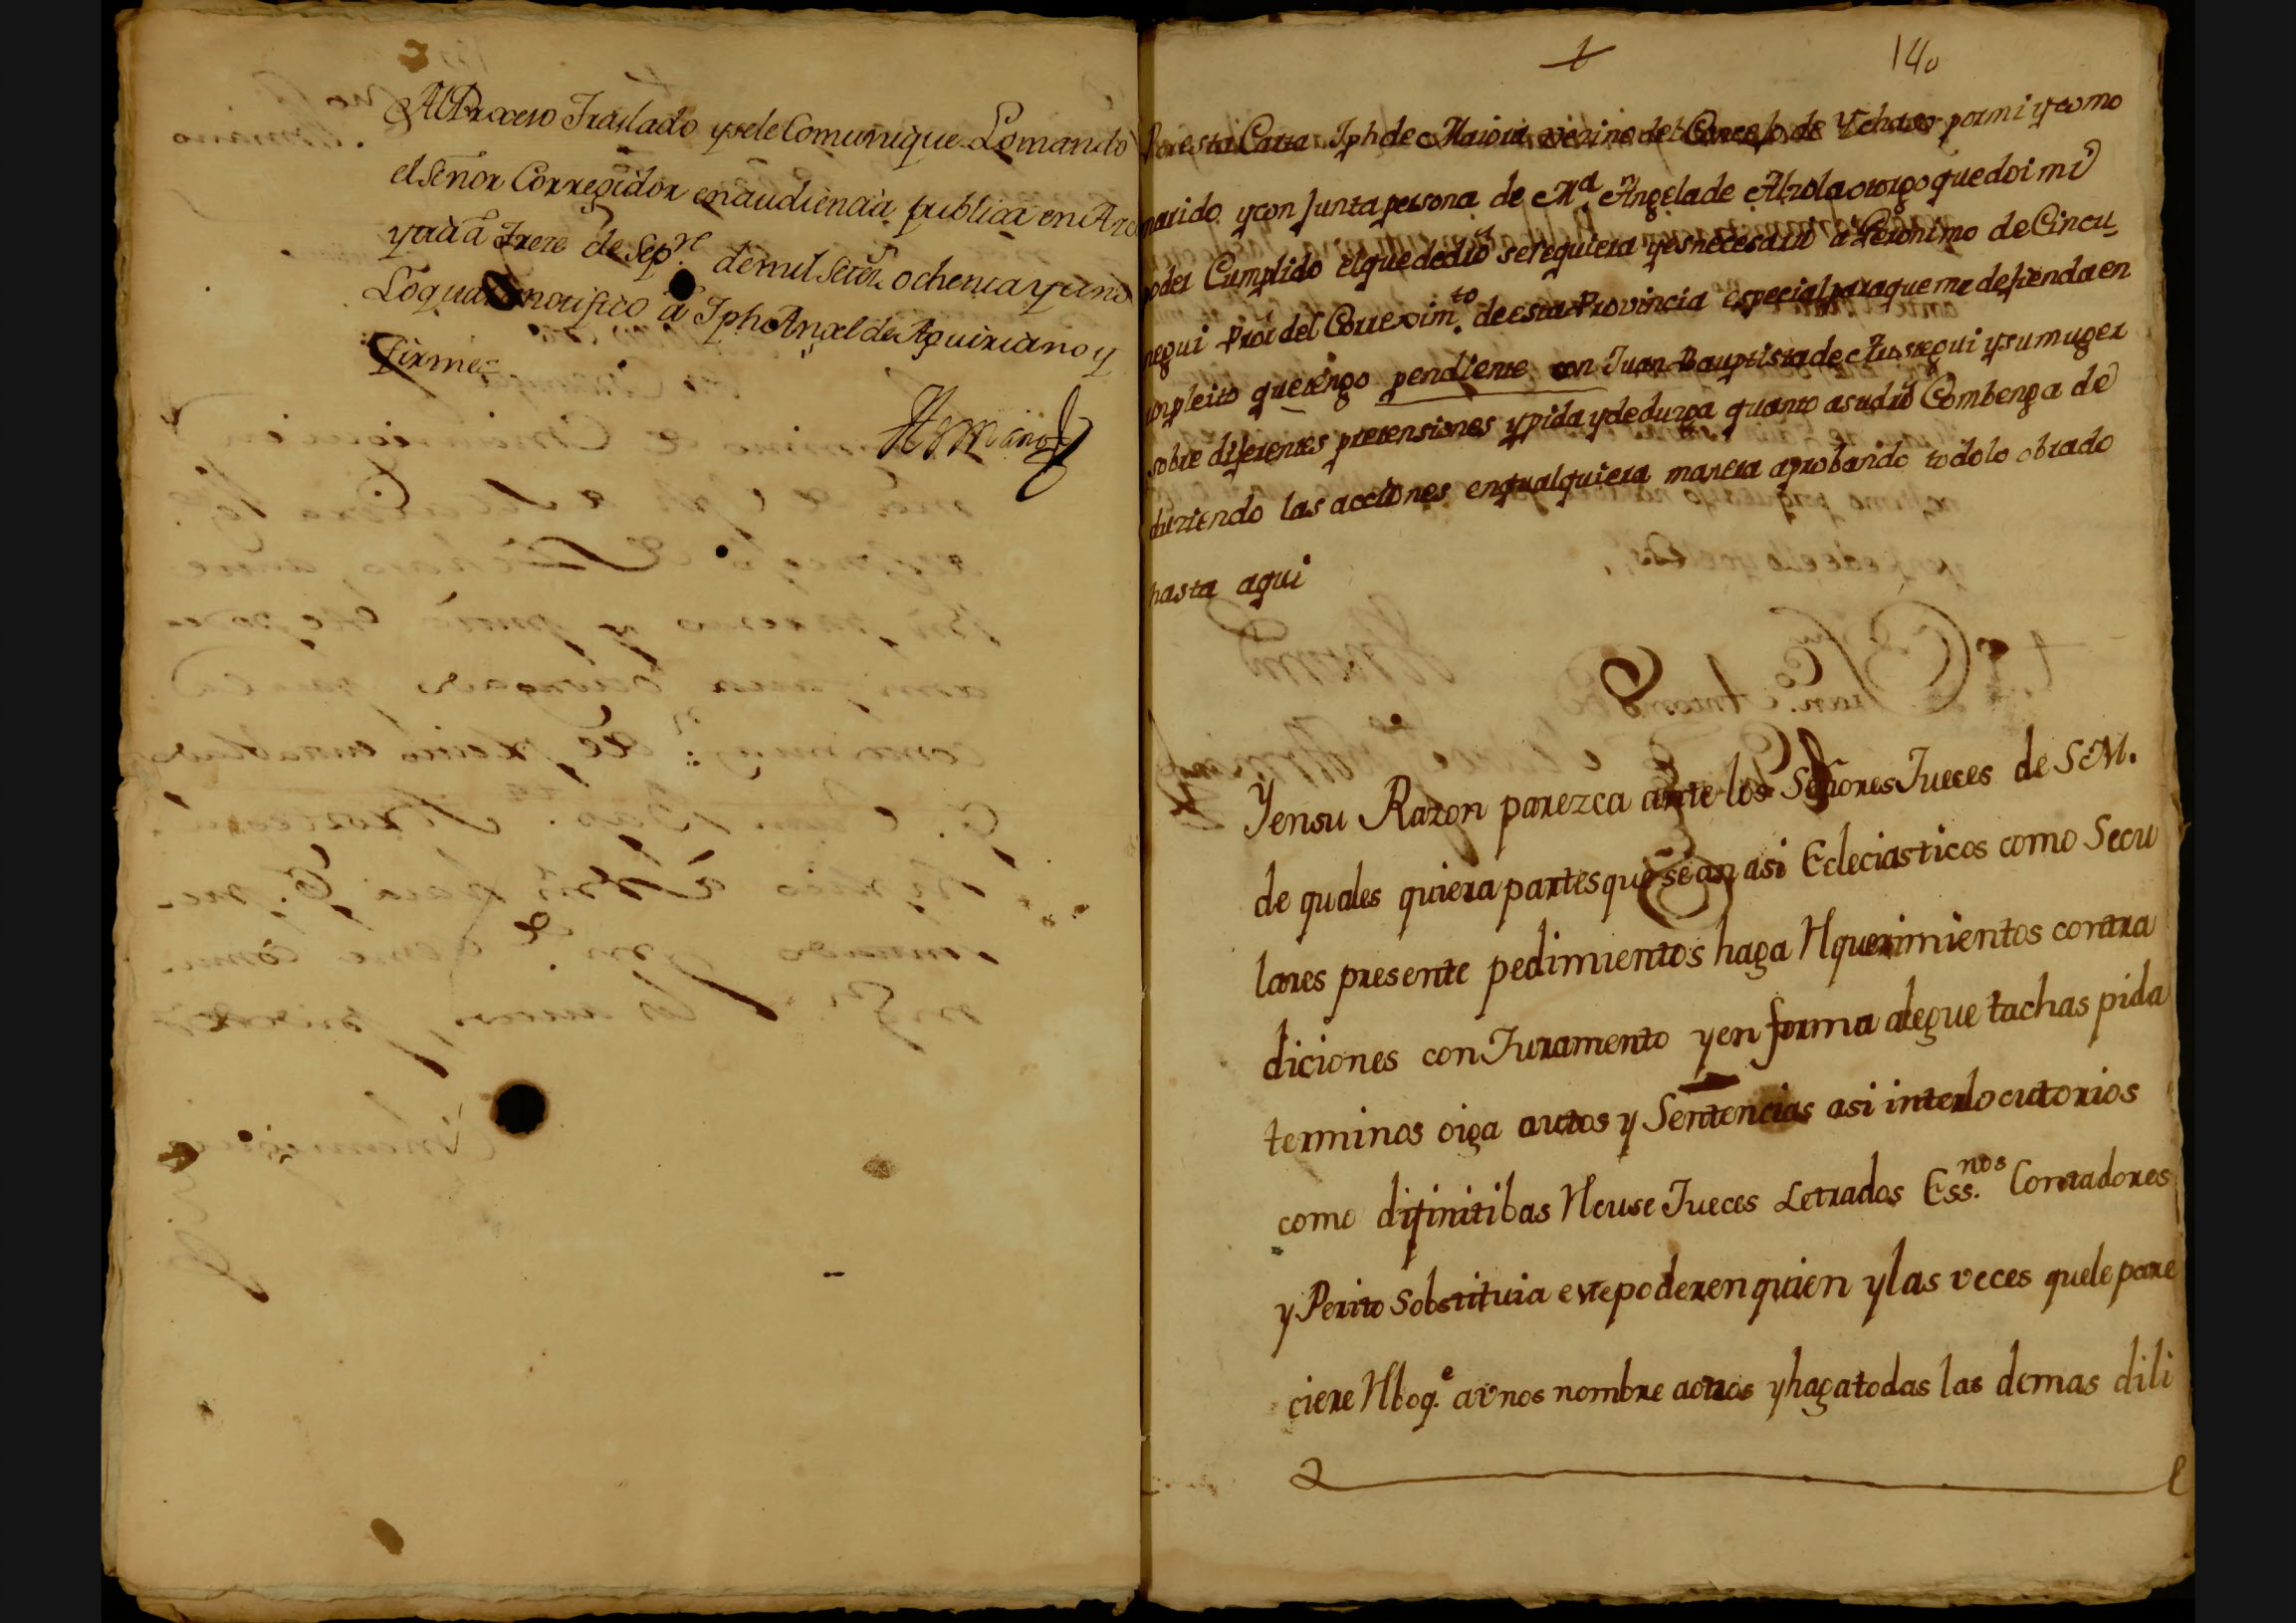 Al Proceso Traslado y se le Comunique Lo mando
el Señor Corregidor en audiencia publica en
a trece de Sep.re de mil setez.s ochenta y uno
Lo qual notifico a Jph Angel de Aquiriano y
firme
140
Por esta Carta Jph de vezino del Concejo de Ychaso por mi y como
marido y conjunta persona de M.a Angela de Alzola otorgo que doi mi
poder Cumplido el que de dro se requiera y es necesario a Geronimo de Cincu
negui Pror del Correxim.to de esta Provincia especial para que me defienda en
un pleito que tengo pendiente con Juan Bauptista de y su muger
sobre diferentes pretensiones y pida y deduzga quanto a su dro Combenga de
duziendo las acciones en qualquiera manera aprobando todo lo obrado
hasta aqui
Y en su Razon parezca ante los Señores Jueces de S.M.
de quales quiera partes que sean asi Ecleciasticos como Secu
lares presente pedimientos haga Rquerimientos contra
diciones con Juramento y en forma alegue tachas pida
terminos oiga autos y Sentencias asi interlocutorios
como difinitibas Rcuse Jueces Letrados Ess.nos Contadores
y Perito Sobstituia este poder en quien y las veces que le pare
ciere Rboq.e a vnos nombre aotros y haga todas las demas dili